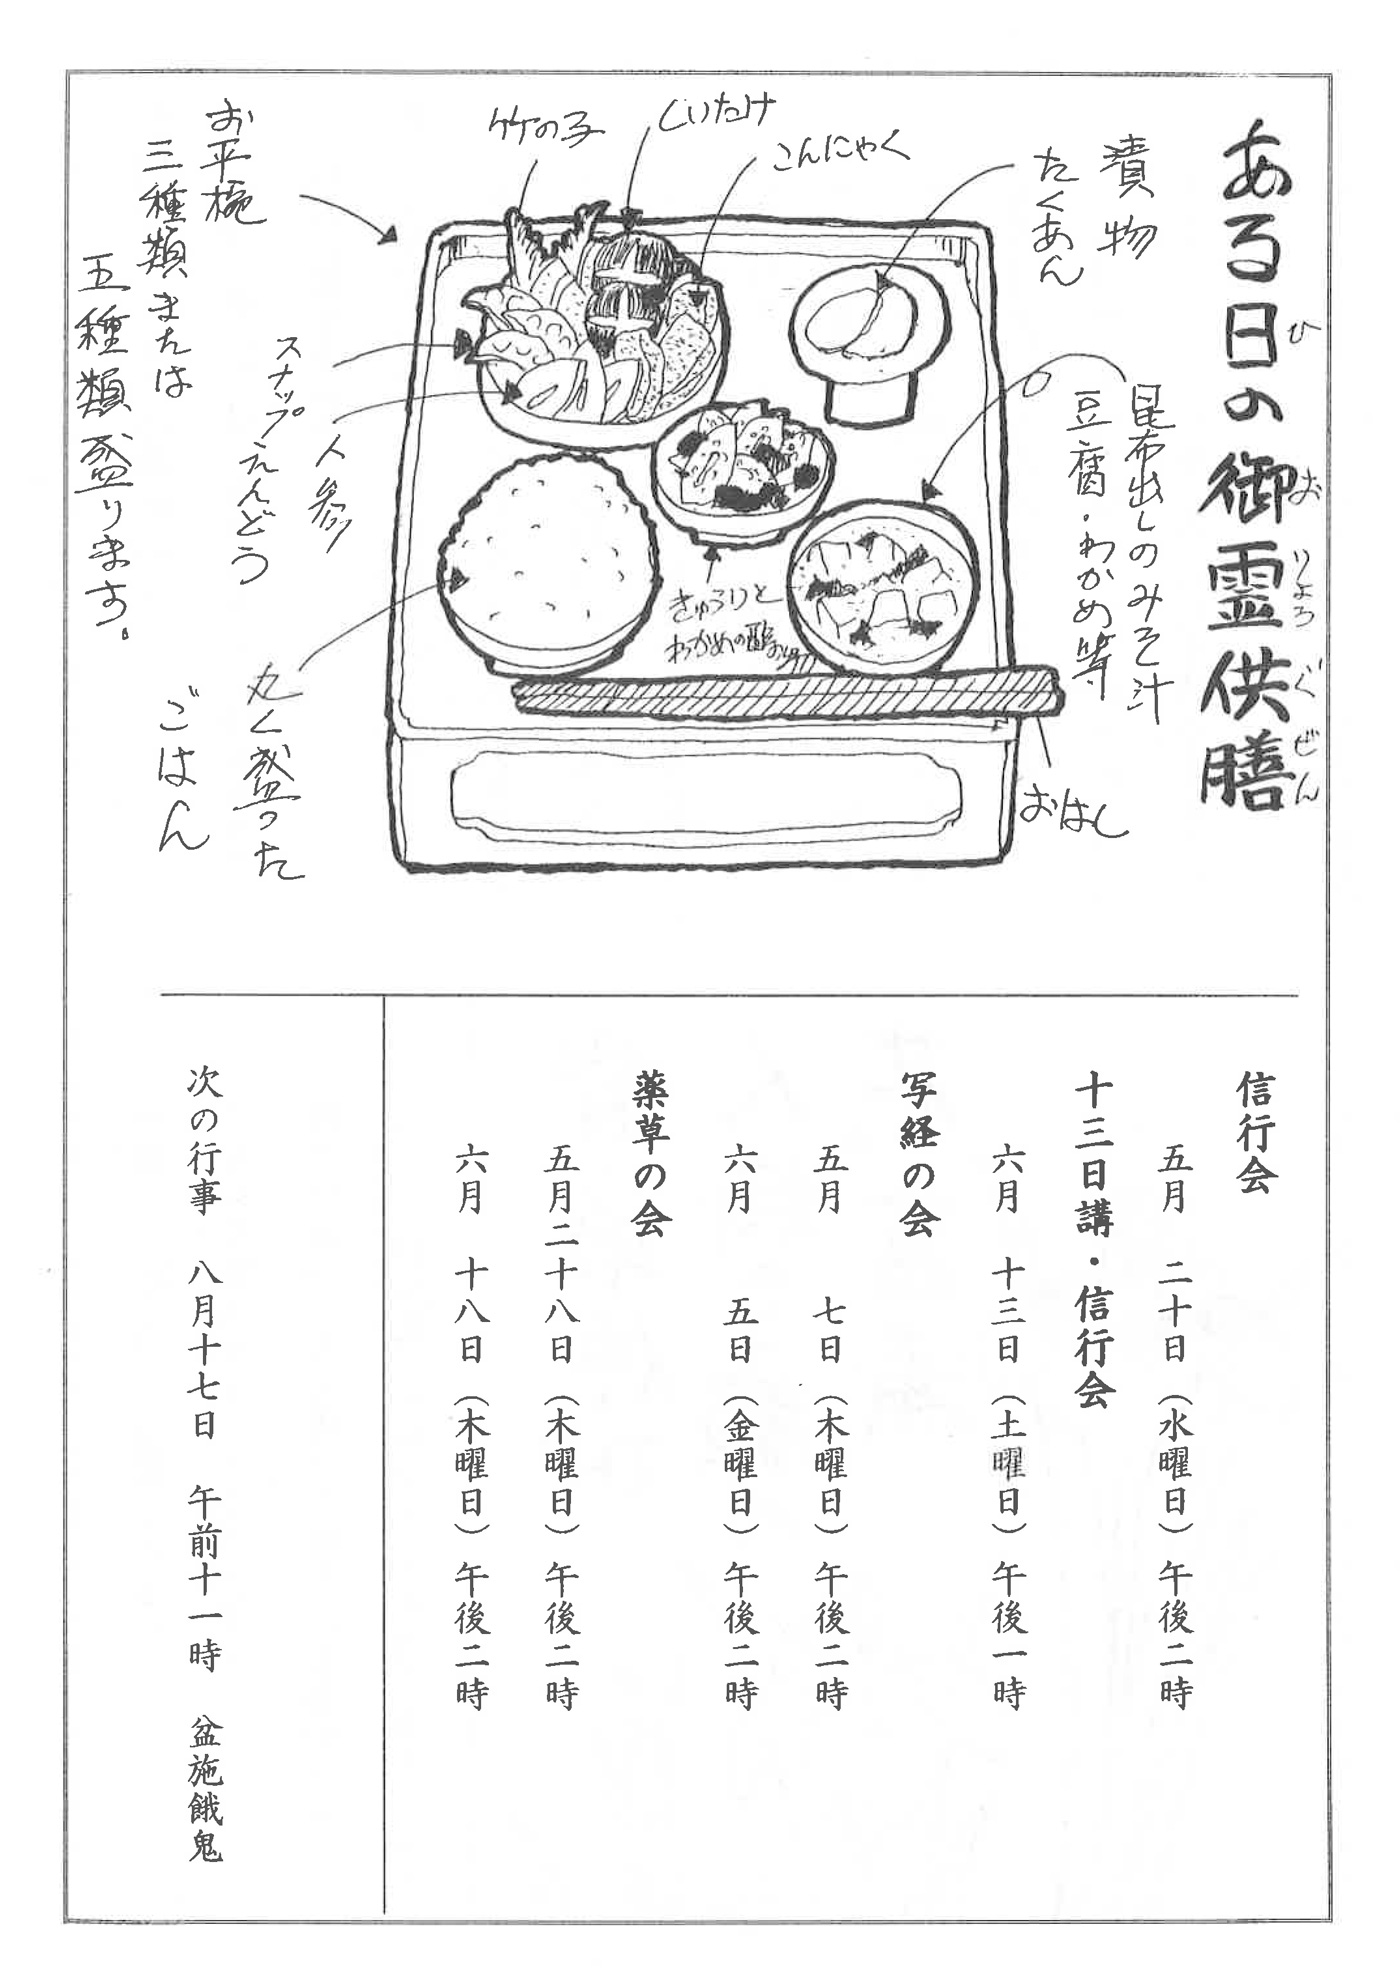 ある日の御霊供膳
ひ
おりょうぐぜん
漬物
たくあん
こんにゃく
しいたけ
竹の子
お平椀
三種類または
五種類盛ります。
昆布出しのみそ汁
豆腐・わかめ等
スナップえんどう
人参
きゅうりと
わかめの酢
丸く盛った
ごはん
おはし
信行会
五月 二十日（水曜日）午後二時
十三日講・信行会
六月 十三日（土曜日）午後一時
写経の会
五月 七日（木曜日）午後二時
六月 五日（金曜日）午後二時
薬草の会
五月二十八日（木曜日）午後二時
六月 十八日（木曜日）午後二時
次の行事 八月十七日 午前十一時 盆施餓鬼